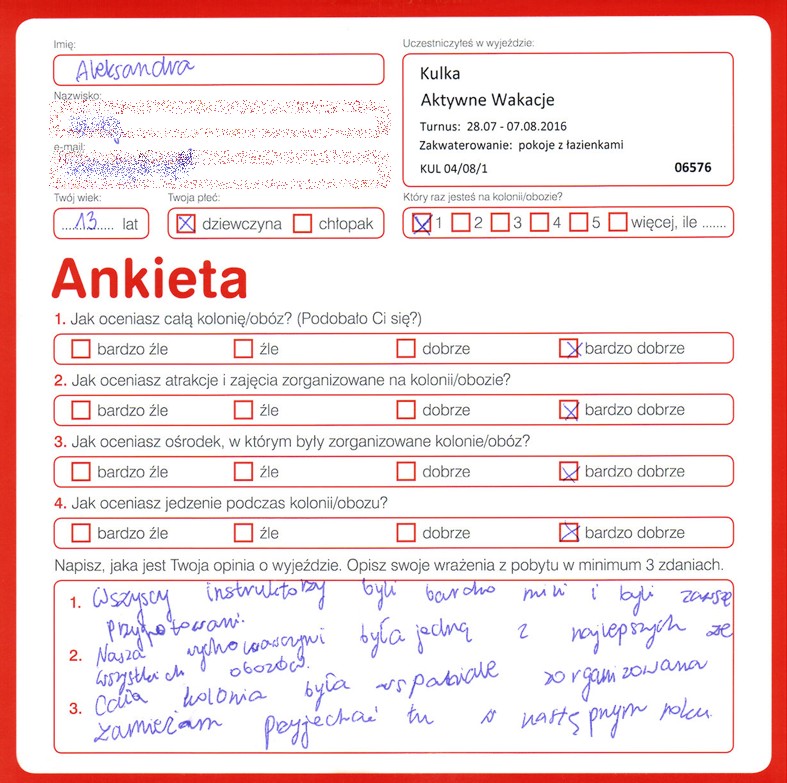 Imię:
Aleksandra
Nazwisko:
e-mail:
Twój wiek:
13 lat
Twoja płeć:
dziewczyna chłopak
Uczestniczyłeś w wyjeździe:
Kulka
Aktywne Wakacje
Turnus: 28.07 - 07.08.2016
Zakwaterowanie: pokoje z łazienkami
KUL 04/08/1 06576
Który raz jesteś na kolonii/obozie?
1 2 3 4 5 więcej, ile .......
Ankieta
1. Jak oceniasz całą kolonię/obóz? (Podobało Ci się?)
bardzo źle źle dobrze bardzo dobrze
2. Jak oceniasz atrakcje i zajęcia zorganizowane na kolonii/obozie?
bardzo źle źle dobrze bardzo dobrze
3. Jak oceniasz ośrodek, w którym były zorganizowane kolonie/obóz?
bardzo źle źle dobrze bardzo dobrze
4. Jak oceniasz jedzenie podczas kolonii/obozu?
bardzo źle źle dobrze bardzo dobrze
Napisz, jaka jest Twoja opinia o wyjeździe. Opisz swoje wrażenia z pobytu w minimum 3 zdaniach.
1. Wszyscy instruktorzy byli bardzo mili i byli zawsze
przygotowani.
2. Nasza wychowawczyni była jedną z najlepszych ze
wszystkich obozów.
3. Cała kolonia była wspaniale zorganizowana
zamierzam przyjechać tu w następnym roku.